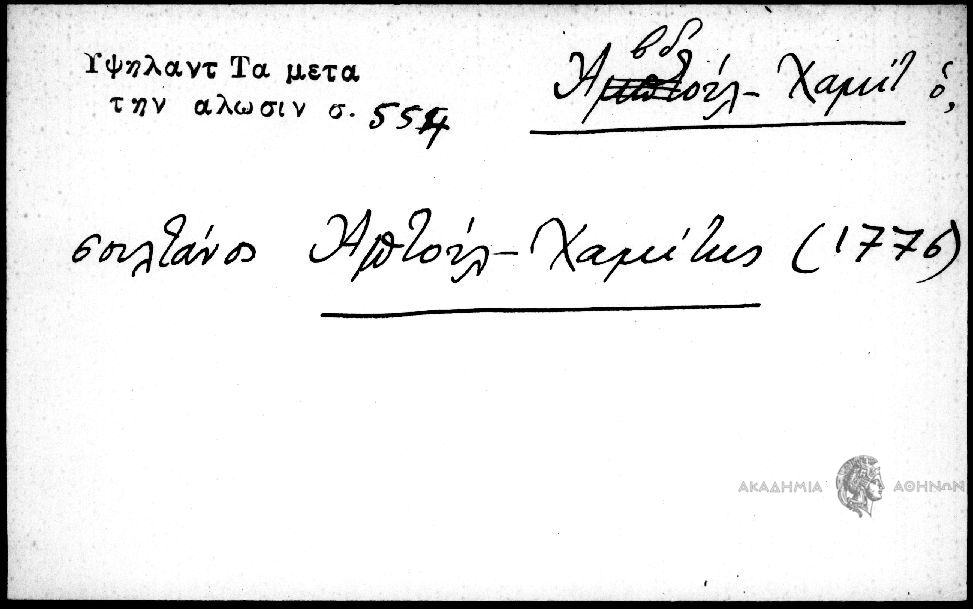 Υψηλαντ Τα μετα
την αλωσιν σ. 554
Ἀβδούλ- Χαμίτ ὁ,
σουλτάνος Ἀμπτούλ- Χαμίτης (1776)
ΑΚΑΔΗΜΙΑ ΑΘΗΝΩΝ